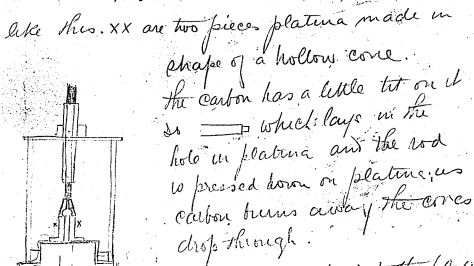 like this. xx are two pieces platina made in
shape of a hollow cone.
the carbon has a little tit on it
so which lays in the
hole in platina and the rod
is pressed down on platina; as
carbon burns away the cones
drop through.
x x